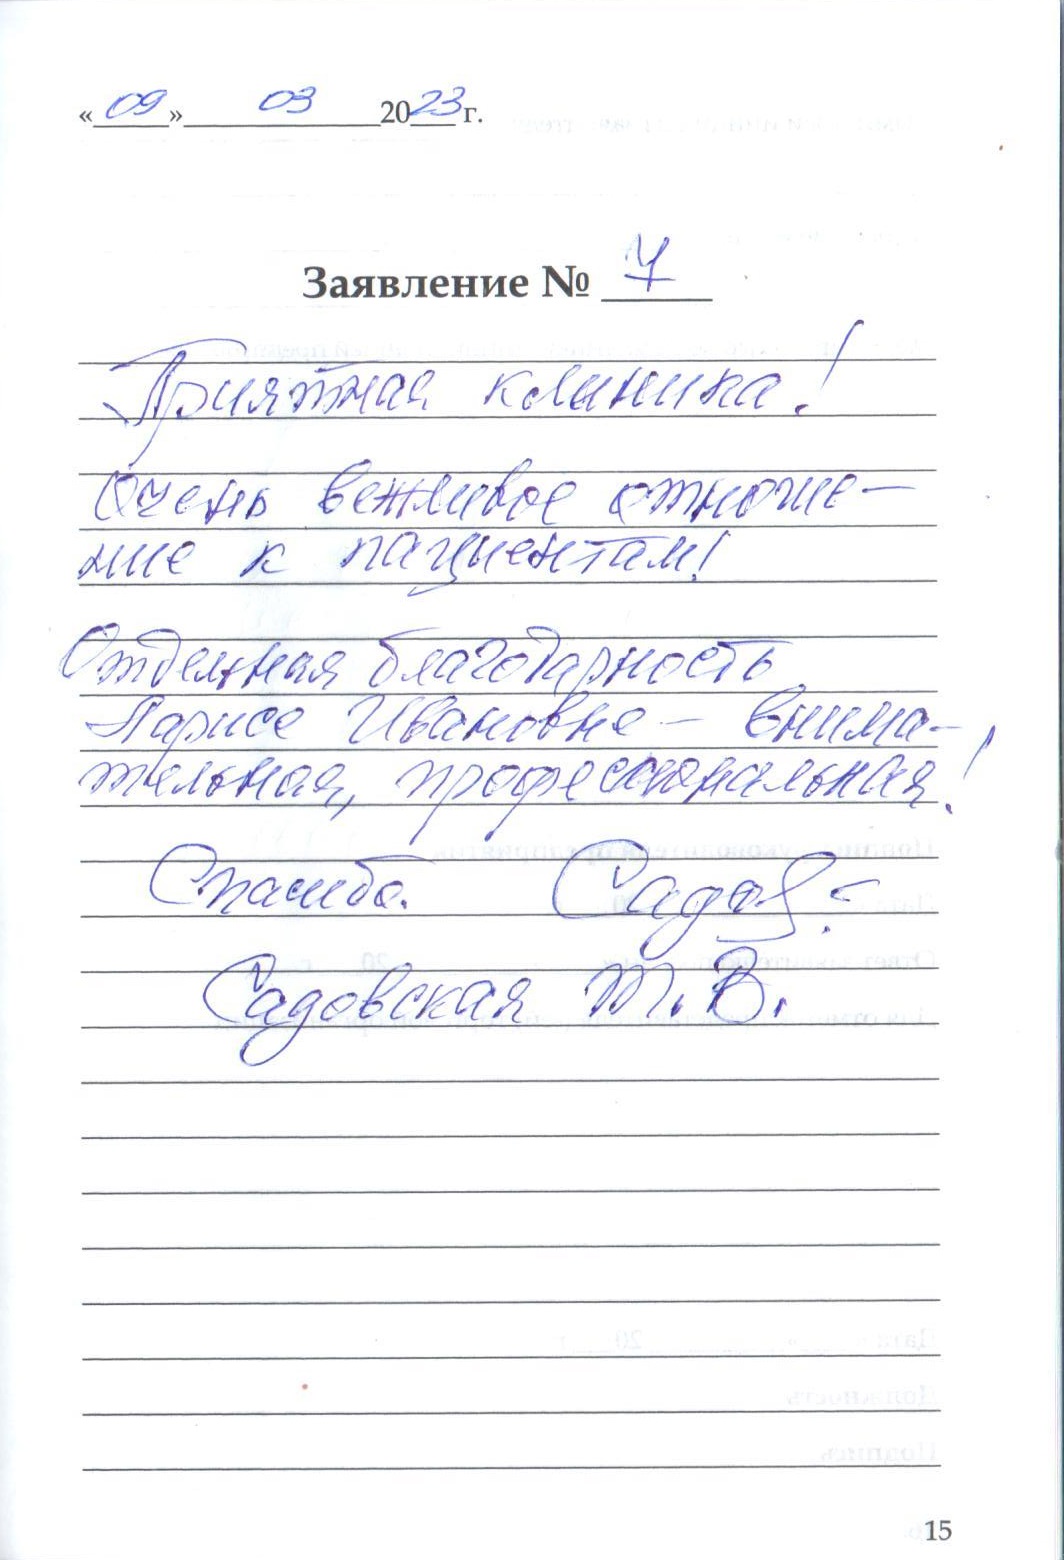 «09» 03 2023 г.
Заявление № 7
Приятная клиника!
Очень вежливое отноше-
ние к пациентам!
Отдельная благодарность
Ларисе Ивановне – внима-
тельная, профессиональная!
Спасибо.
Садовская Т.В.
15